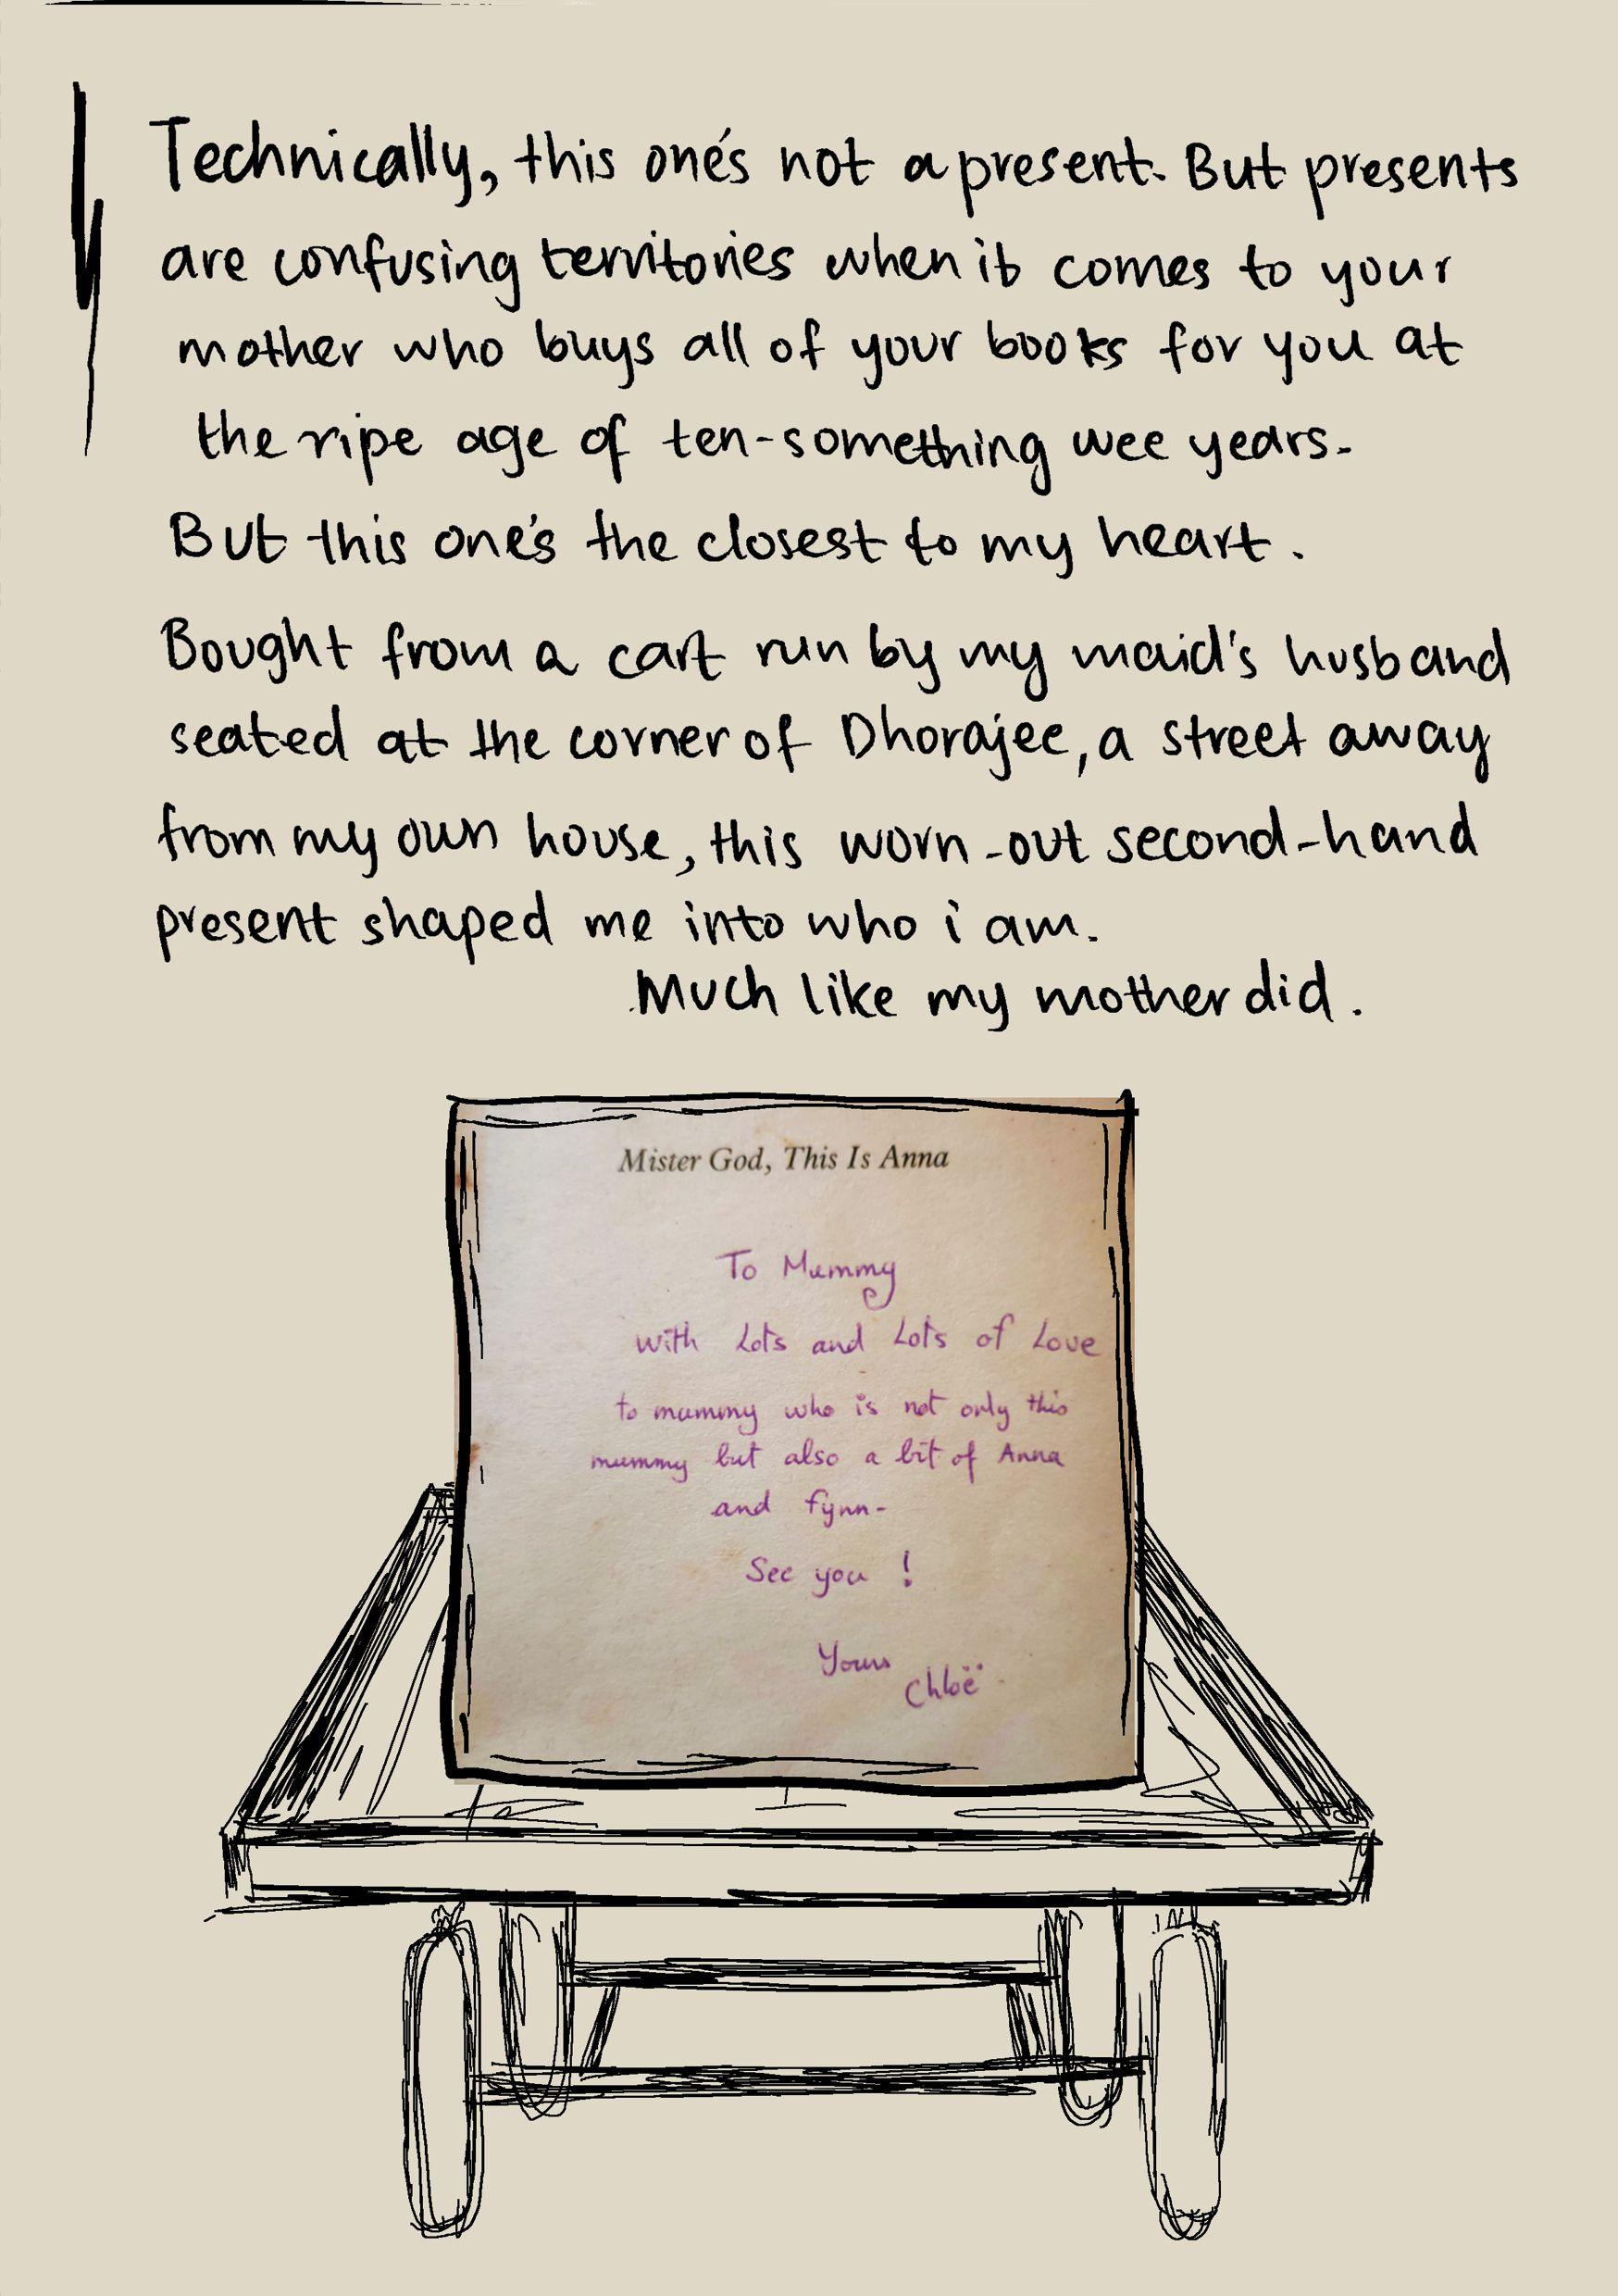 Technically, this one's not a present. But presents
are confusing territories when it comes to your
mother who buys all of your books for you at
the ripe age of ten-something wee years.
But this one's the closest to my heart.
Bought from a cart run by my maid's husband
seated at the corner of Dhorajee, a street away
from my own house, this worn-out second-hand
present shaped me into who i am.
Much like my mother did.
Mister God, This Is Anna
To Mummy
with Lots and Lots of Love
to mummy who is not only this
mummy but also a bit of Anna
and fynn-
See you !
Yours
Chloë